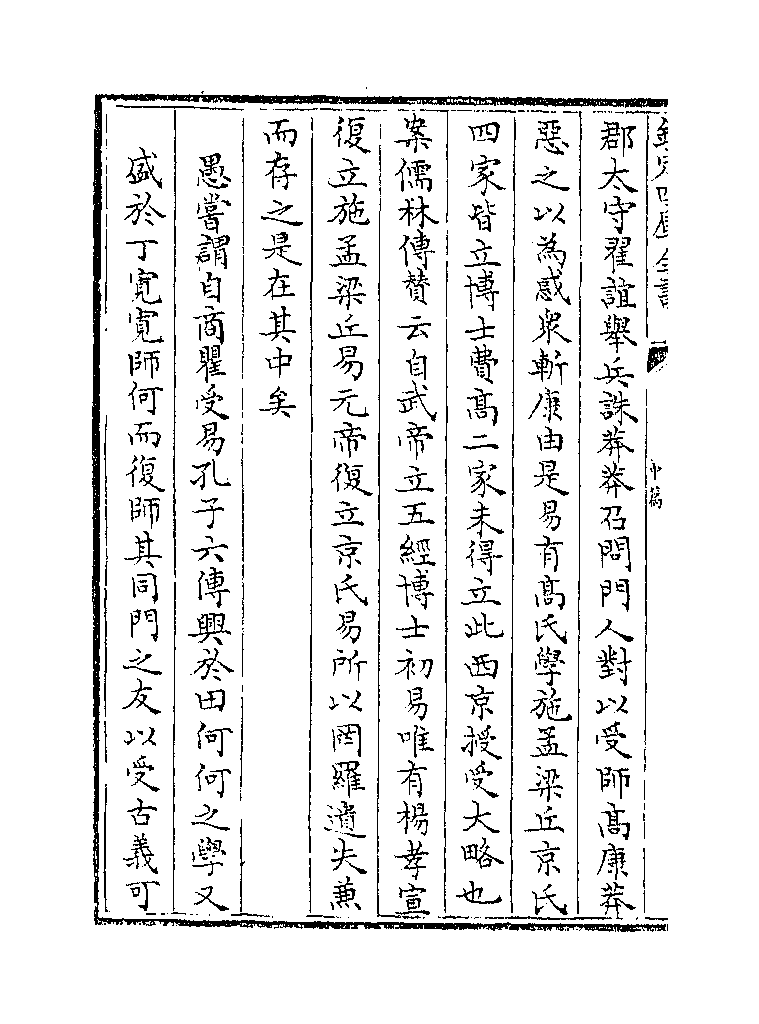 郡太守翟誼舉兵誅莽莽召問門人對以受師髙康莽
惡之以為惑衆斬康由是易有髙氏學施孟梁丘京氏
四家皆立博士費髙二家未得立此西京授受大略也
案儒林傳贊云自武帝立五經博士初易唯有楊孝宣
復立施孟梁丘易元帝復立京氏易所以罔羅遺失兼
而存之是在其中矣
愚嘗謂自商瞿受易孔子六傳興於田何何之學又
盛於丁寛寛師何而復師其同門之友以受古義可